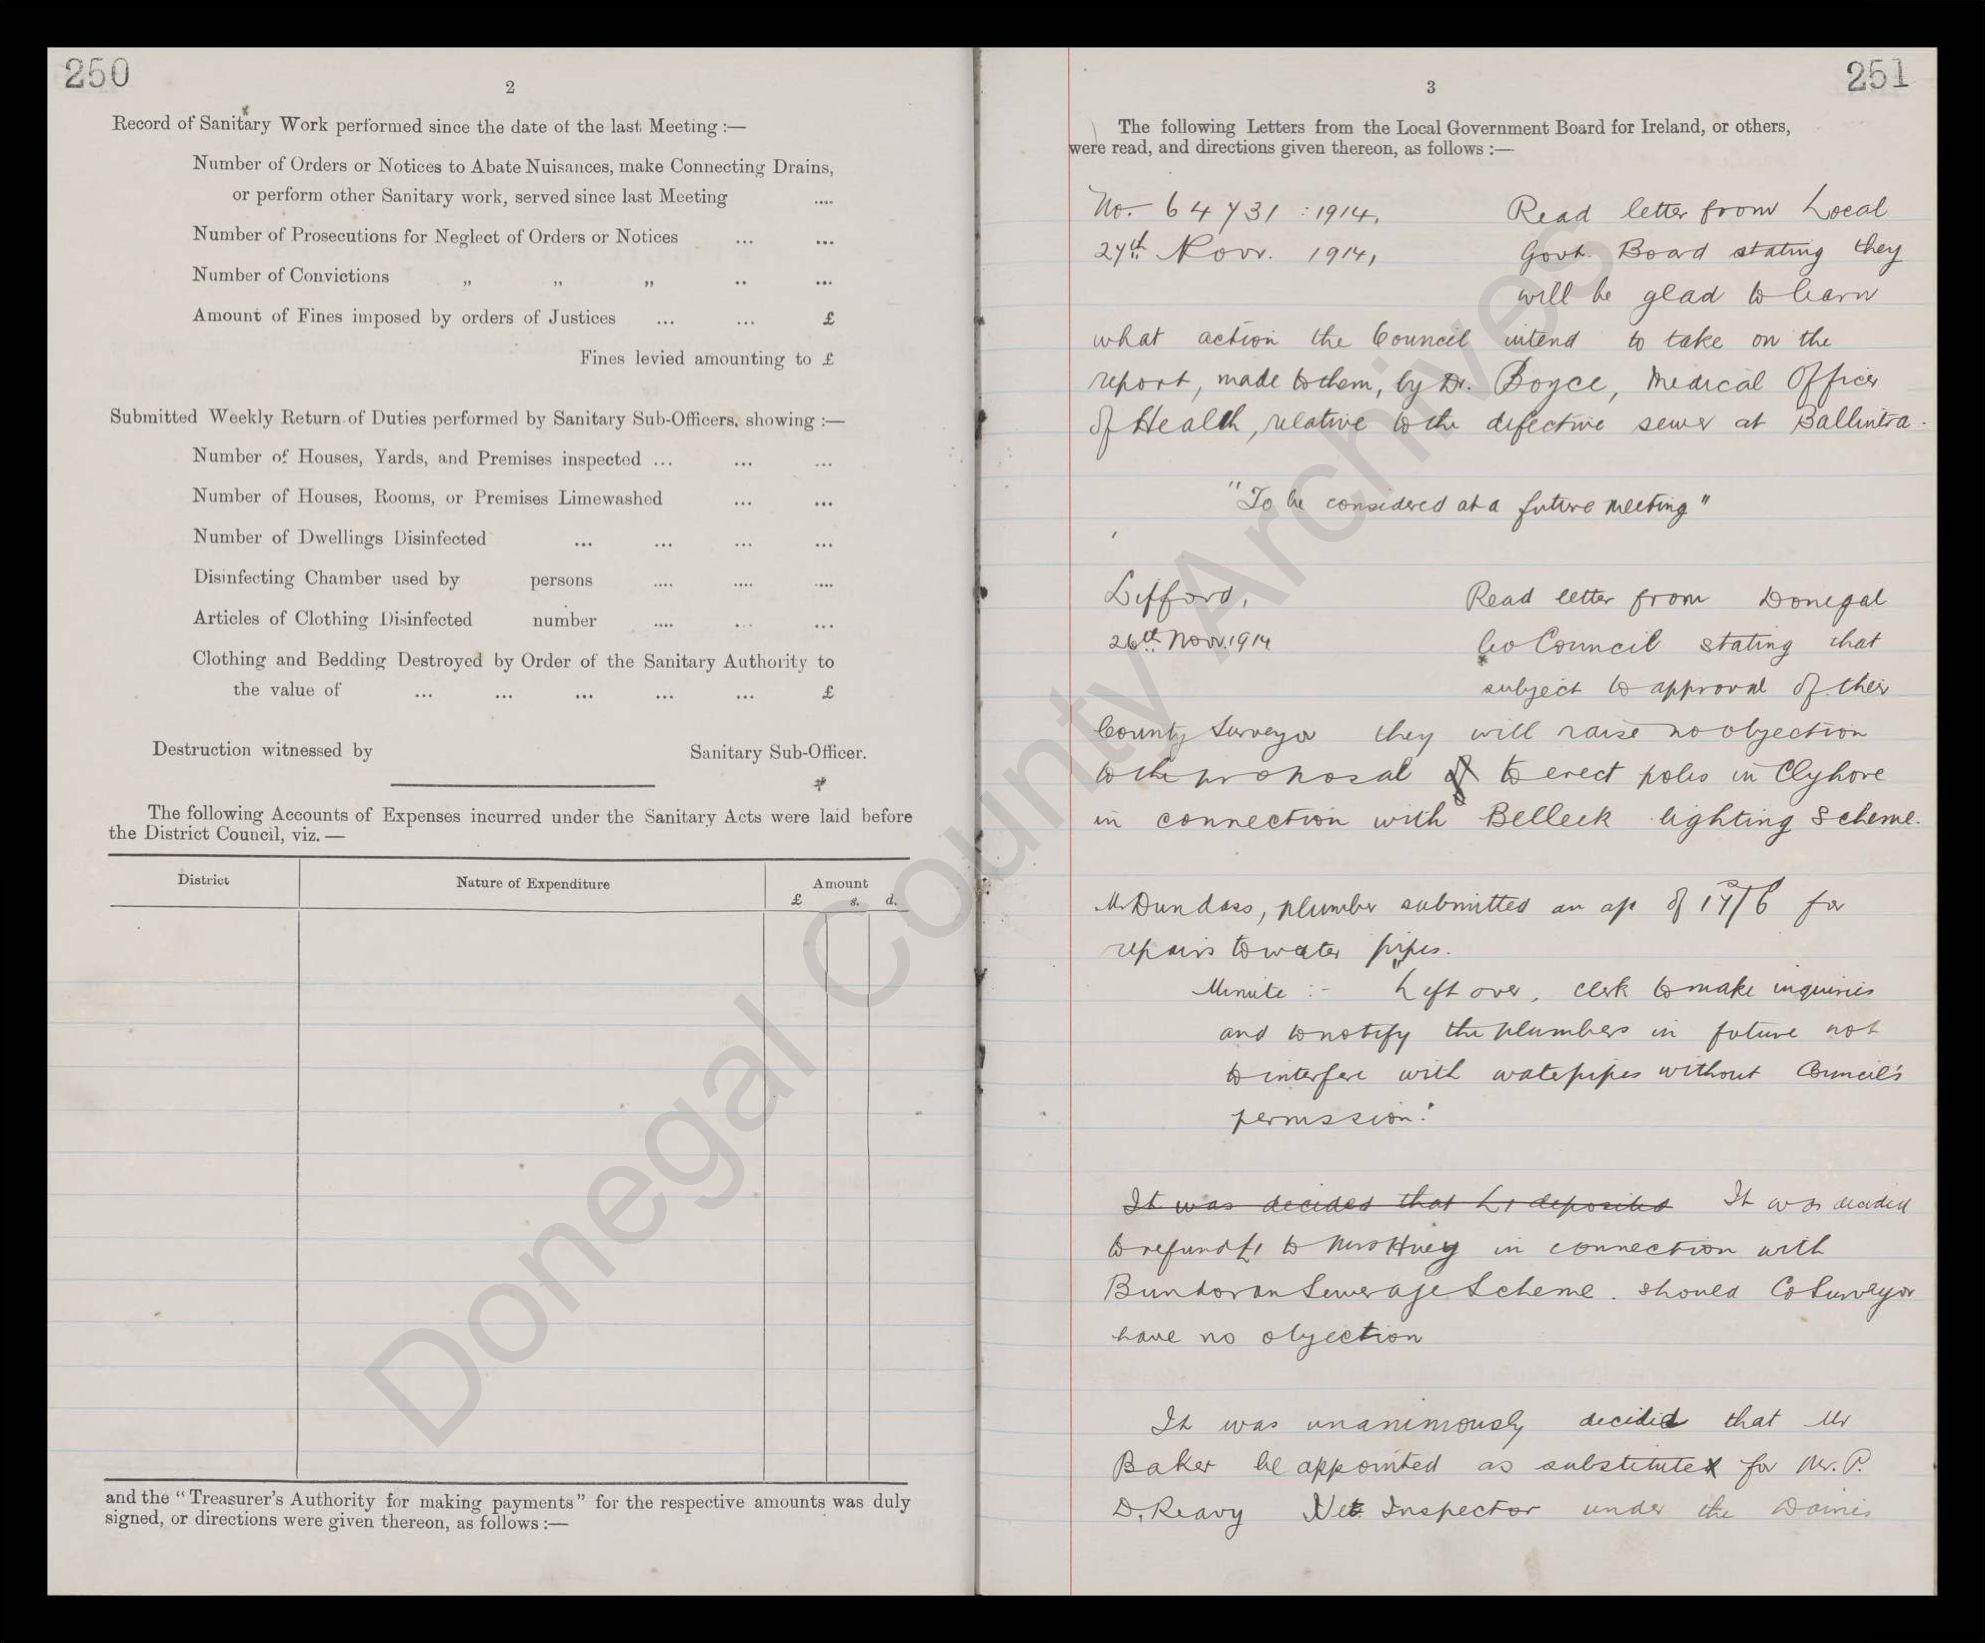 250
2
Record of Sanitary Work performed since the date of the last Meeting :—
Number of Orders or Notices to Abate Nuisances, make Connecting Drains,
or perform other Sanitary work, served since last Meeting ....
Number of Prosecutions for Neglect of Orders or Notices ... ...
Number of Convictions „ „ „ .. ...
Amount of Fines imposed by orders of Justices ... ... £
Fines levied amounting to £
Submitted Weekly Return of Duties performed by Sanitary Sub-Officers, showing :—
Number of Houses, Yards, and Premises inspected ... ... ...
Number of Houses, Rooms, or Premises Limewashed ... ...
Number of Dwellings Disinfected ... ... ... ...
Disinfecting Chamber used by persons .... .... ....
Articles of Clothing Disinfected number .... ... ...
Clothing and Bedding Destroyed by Order of the Sanitary Authority to
the value of ... ... ... ... ... £
Destruction witnessed by Sanitary Sub-Officer.
The following Accounts of Expenses incurred under the Sanitary Acts were laid before
the District Council, viz. —
District Nature of Expenditure Amount
£ s. d.
and the "Treasurer's Authority for making payments" for the respective amounts was duly
signed, or directions were given thereon, as follows :—
251
3
The following Letters from the Local Government Board for Ireland, or others,
were read, and directions given thereon, as follows :—
No. 64731 : 1914, Read letter from Local
27th Novr. 1914, Govt. Board stating they
will be glad to learn
what action the Council intend to take on the
report, made to them, by Dr. Boyce, Medical Officer
of Health, relative to the defective sewer at Ballintra.
"To be considered at a future meeting"
Lifford, Read letter from Donegal
26th Novr. 1914 Co Council stating that
subject to approval of their
County Surveyor they will raise no objection
to the proposal to erect poles in Clyhore
in connection with Belleek lighting Scheme.
Mr Dundass, plumber submitted an a/c of 17s/6d for
repairs to water pipes.
Minute :- "Left over, clerk to make inquiries
and to notify the plumbers in future not
to interfere with waterpipes without Council's
permission."
It was decided that £1 deposited It was decided
to refund £1 to Mrs Huey in connection with
Bundoran Sewerage Scheme. should Co Surveyor
have no objection
It was unanimously decided that Mr
Baker be appointed as substitute for Mr. P.
D. Reavy Vet. Inspector under the Dairies
Donegal County Archives